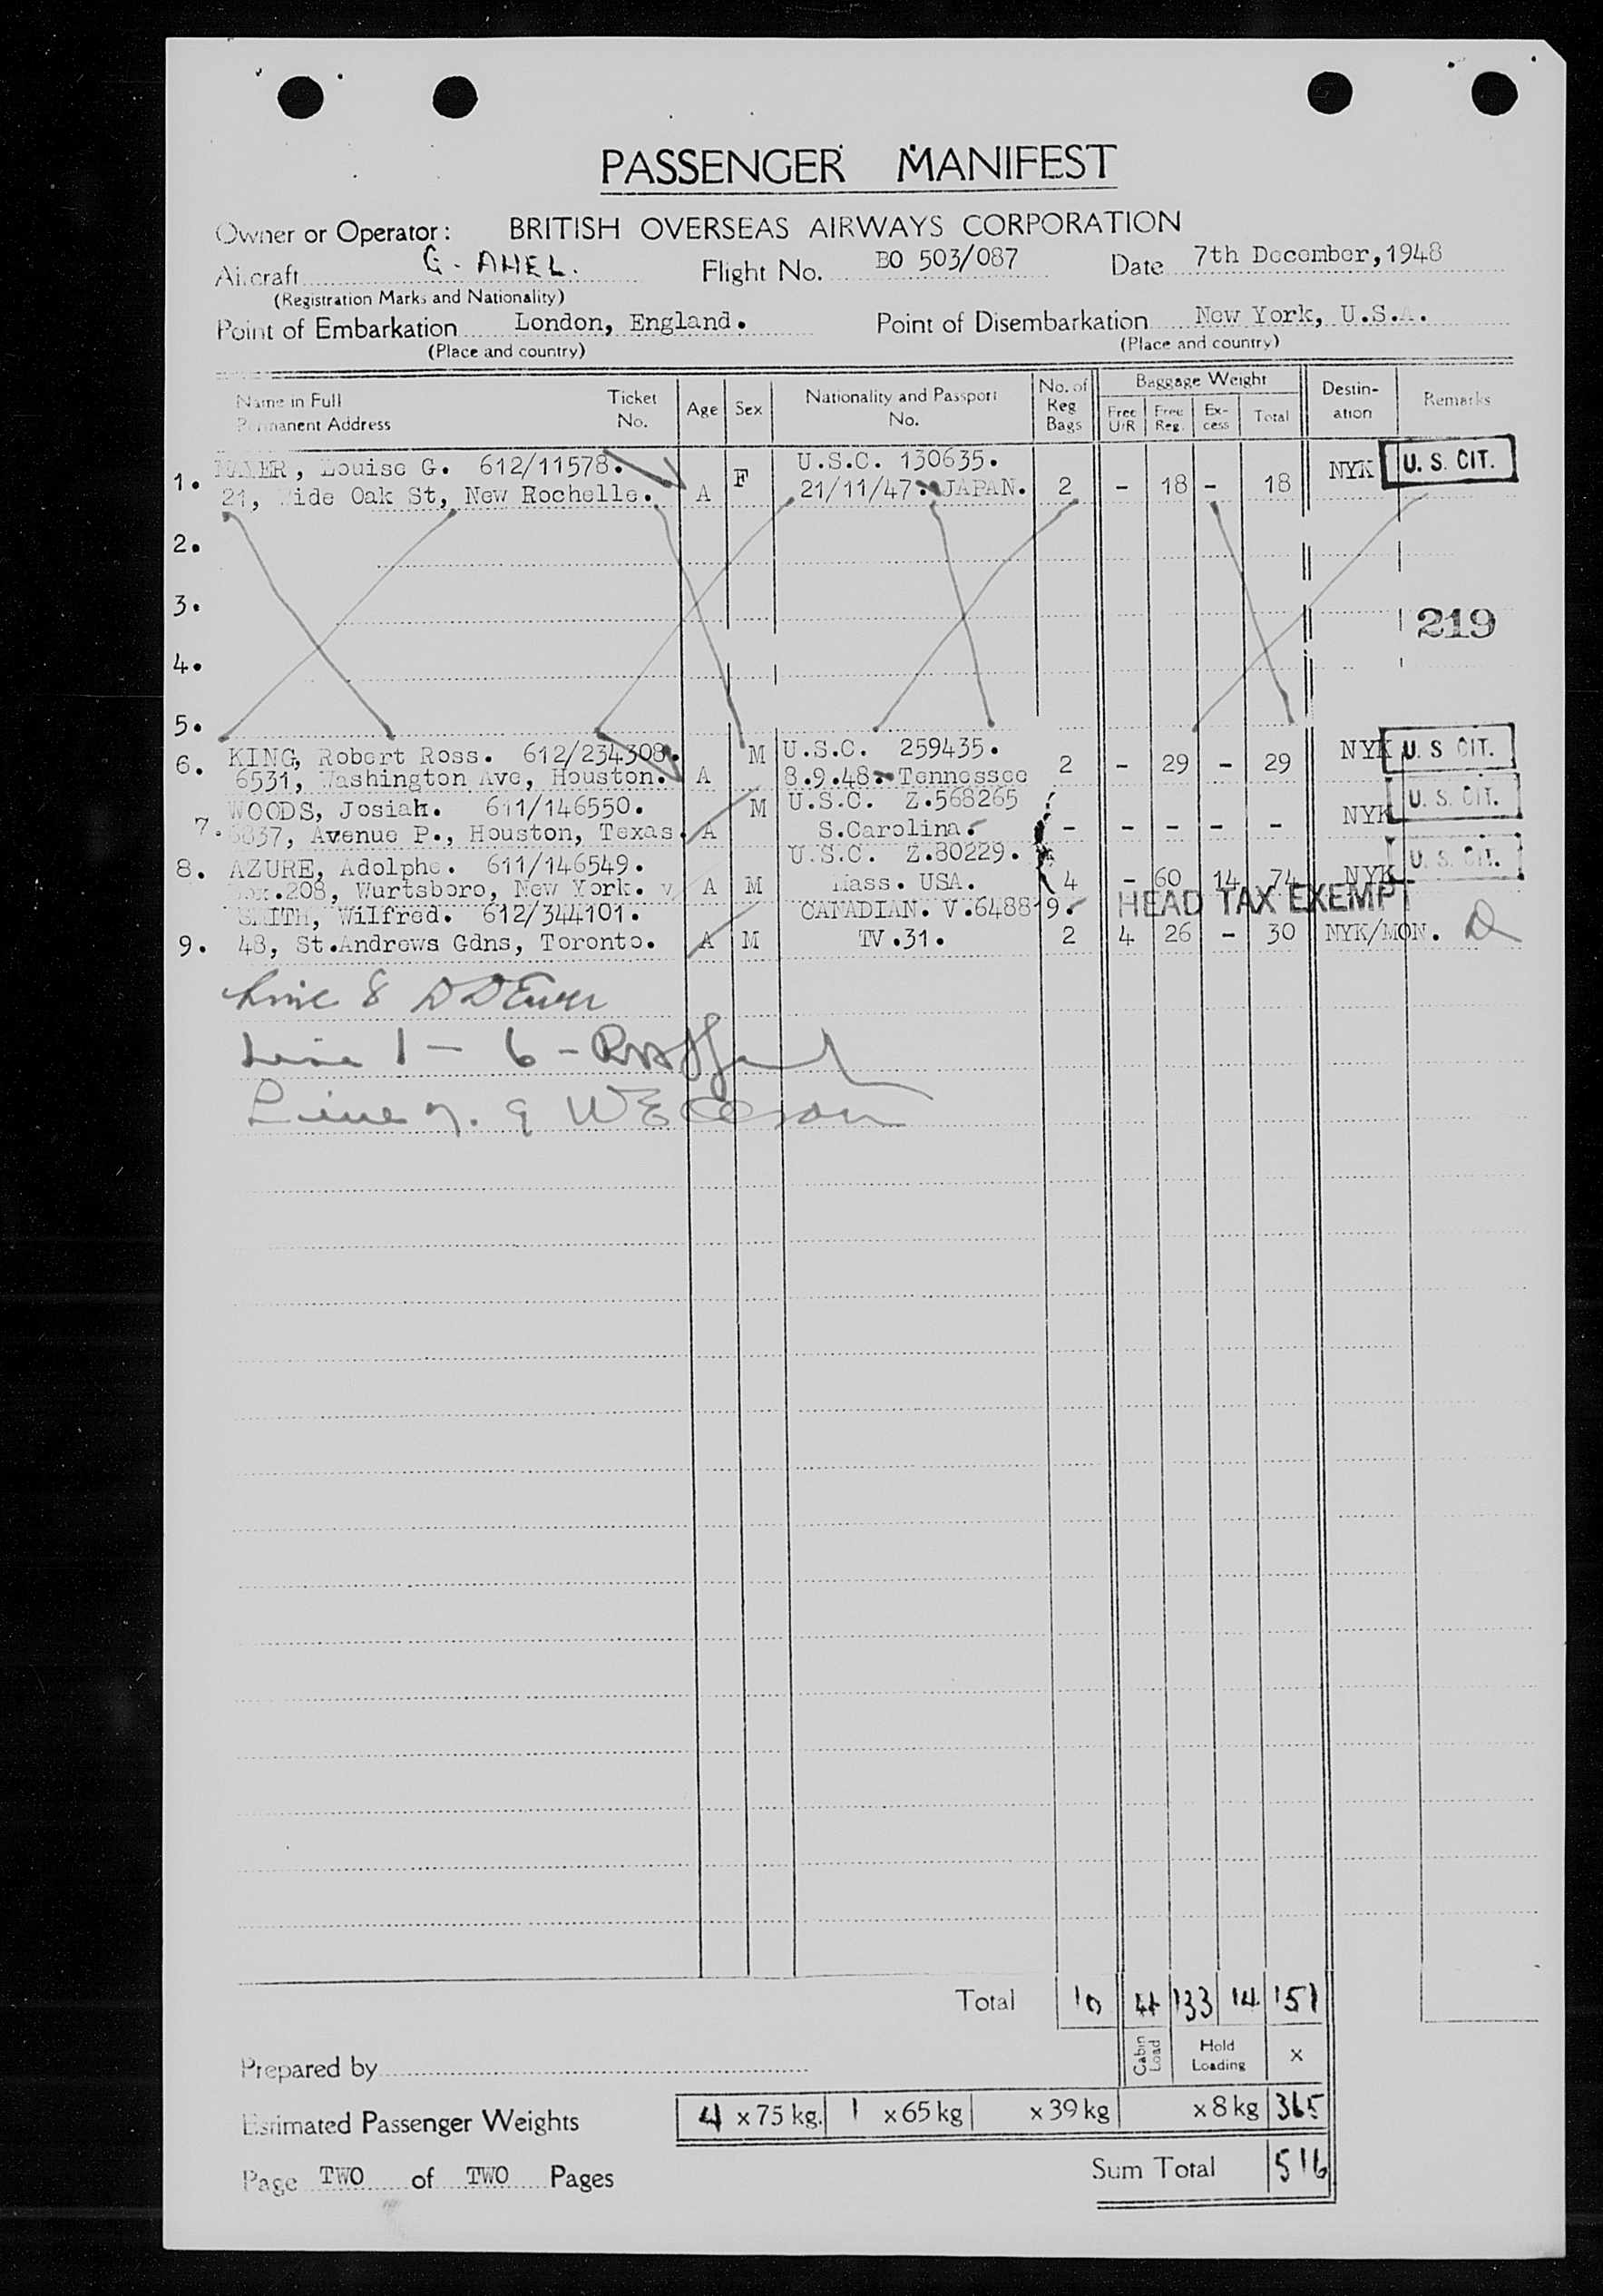 PASSENGER MANIFEST
Owner or Operator: BRITISH OVERSEAS AIRWAYS CORPORATION
Aircraft G. AHEL. Flight No. BO 503/087 Date 7th December, 1948
(Registration Marks and Nationality)
Point of Embarkation London, England. Point of Disembarkation New York, U.S.A.
(Place and country) (Place and country)
Name in Full Permanent Address Ticket No. Age Sex Nationality and Passport No. No. of Reg Bags Baggage Weight Free U/R Free Reg. Excess Total Destination Remarks
1. Louise G. 612/11578. F U.S.C. 130635. NYK U. S. CIT.
21, Oak St, New Rochelle. A 21/11/47. JAPAN. 2 - 18 - 18
2.
3. 219
4.
5.
6. KING, Robert Ross. 612/234308. M U.S.C. 259435. NYK U. S CIT.
6531, Washington Ave, Houston. A 8.9.48. Tennessee 2 - 29 - 29
7. WOODS, Josiah. 611/146550. M U.S.C. Z.568265 NYK U. S. CIT.
6837, Avenue P., Houston, Texas. A S.Carolina. - - - - -
8. AZURE, Adolphe. 611/146549. U.S.C. Z.80229. U. S. CIT.
Box.208, Wurtsboro, New York. v A M Mass. USA. 4 - 60 14 74 NYK
SMITH, Wilfred. 612/344101. CANADIAN. V.648819. HEAD TAX EXEMPT
9. 48, St.Andrews Gdns, Toronto. A M TV.31. 2 4 26 - 30 NYK/MON. D
Line 8
Line 1 - 6 -
Line 7. 9
Total 10 4 133 14 151
Cabin Load Hold Loading x
Prepared by
Estimated Passenger Weights 4 x 75 kg. 1 x 65 kg x 39 kg x 8 kg 365
Page TWO of TWO Pages Sum Total 516